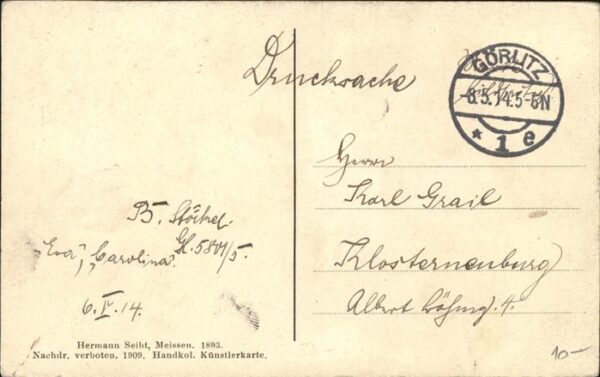 Drucksache
GÖRLITZ
-8.5.14.5-6N
* 1 e
Herrn
Karl Grail
Klosterneuburg
Albert Böhmg. 4.
B. Stöckel.
"Eva", "Carolina". Gl. 5801/5.
6.V.14.
Hermann Seibt, Meissen. 1893.
Nachdr. verboten. 1909. Handkol. Künstlerkarte.
10-